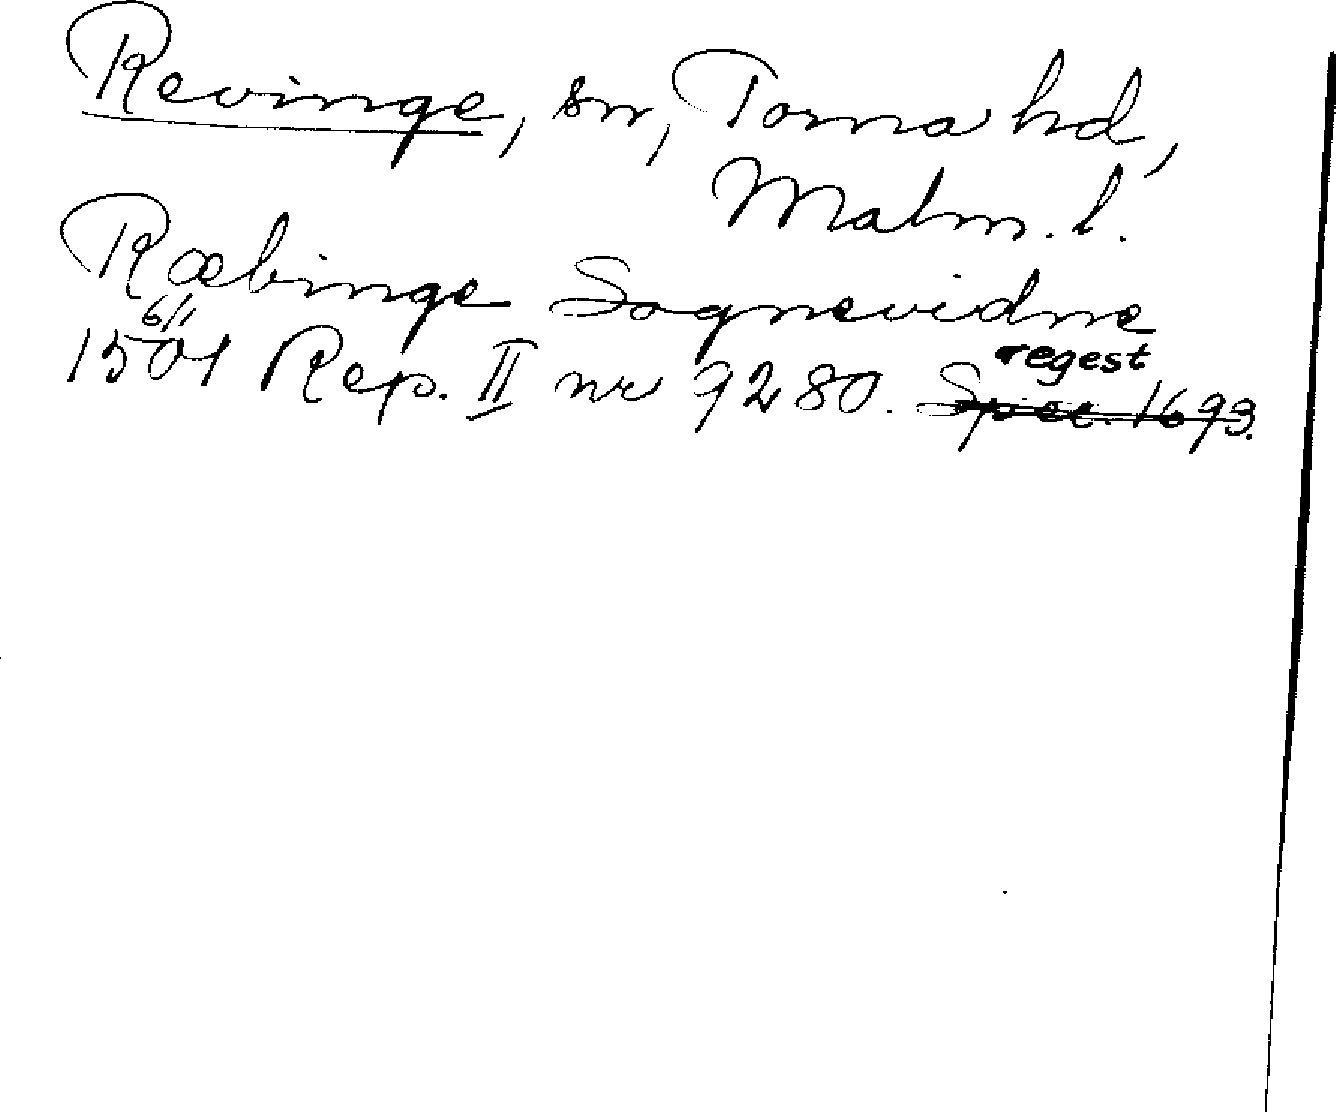 Revinge, sn, Torna hd,
Malm. l.
Ræbinge Sognevidne
6/1
1501 Rep. II nr 9280. Spec. 1693.
regest